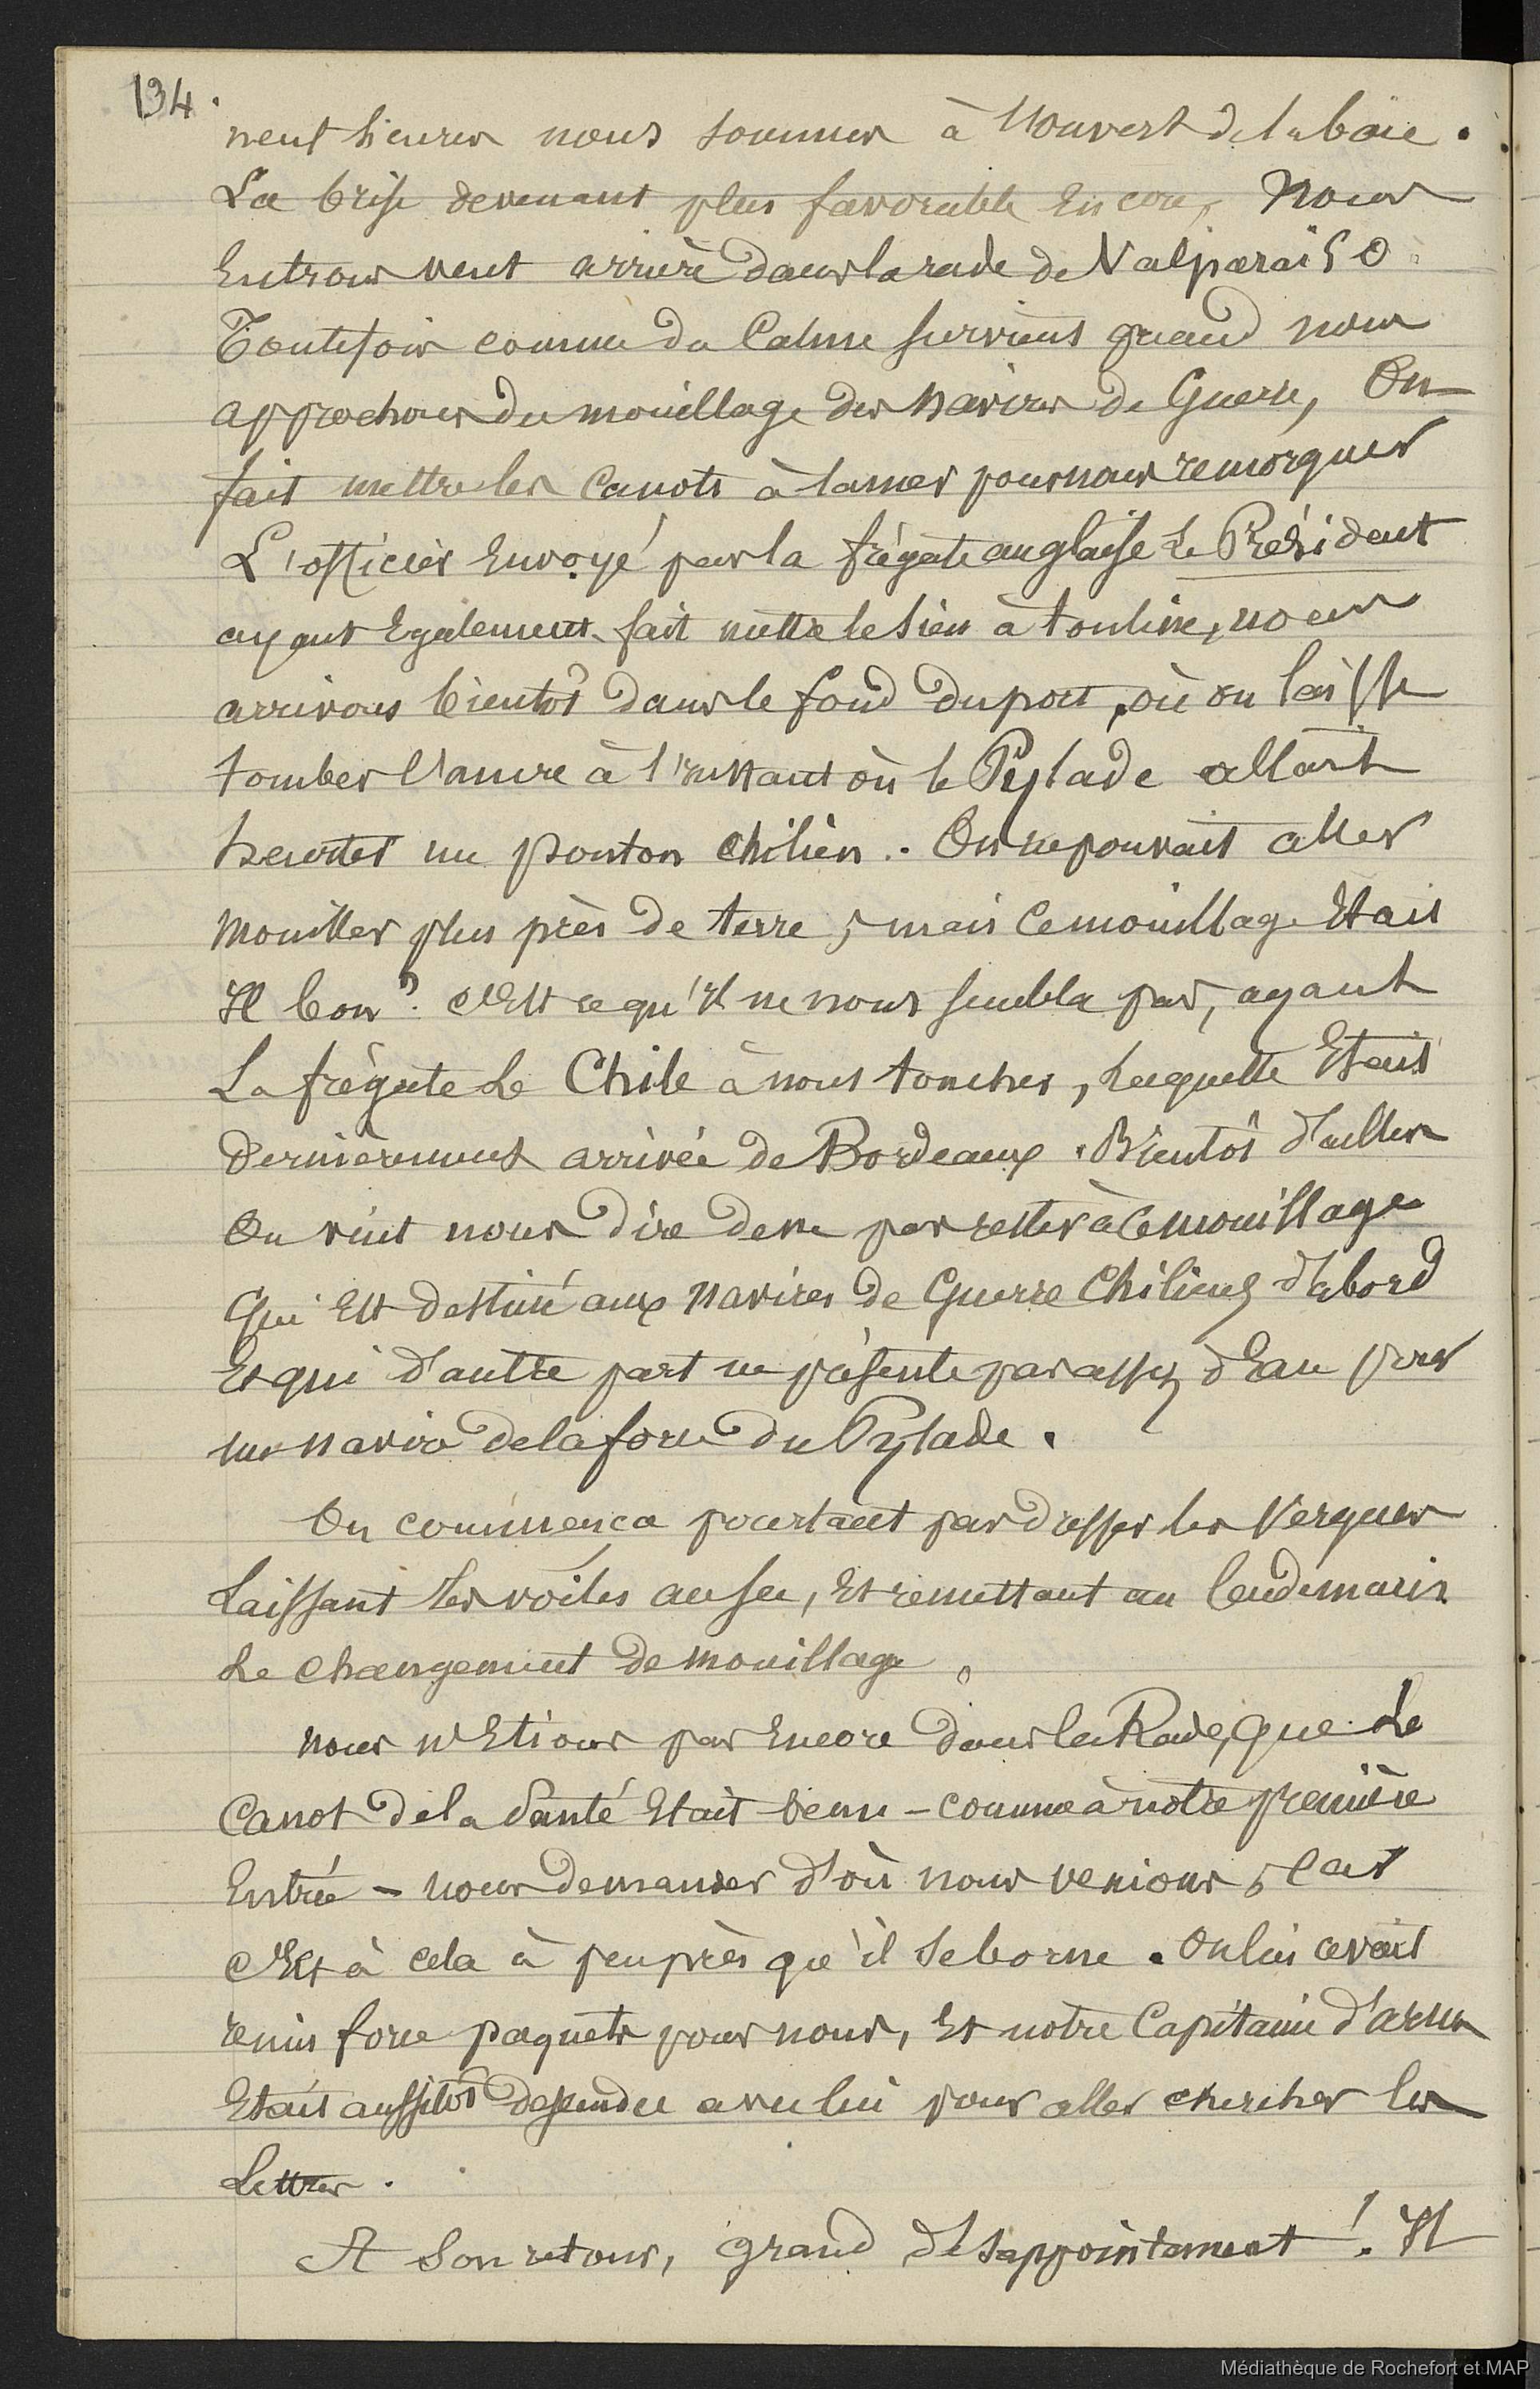 134.
neuf heures nous sommes à l'ouvert de la baie.
La brise devenant plus favorable Encore, Nous
Entrons vent arrière dans la rade de Valparaiso.
Toutefois comme du Calme survient quand nous
approchons du mouillage des Navires de Guerre, On
fait mettre les Canots à la mer pour nous remorquer
L'officier Envoyé par la frégate anglaise Le Président
ayant Egalement fait mettre le sien à touline, nous
arrivons bientôt dans le fond du port, où on laisse
tomber l'ancre à l'instant où le Pylade allait
heurter un ponton Chilien. On ne pouvait aller
Mouiller plus près de terre ; mais Ce mouillage Etait
Il bon ? C'Est ce qu'il ne nous sembla pas, ayant
La frégate Le Chile à nous toucher, Laquelle Etait
dernièrement arrivée de Bordeaux. Bientôt d'ailleurs
On vint nous dire de ne pas rester à Ce mouillage
Qui Est destiné aux Navires de Guerre Chiliens d'abord
Et qui d'autre part ne présente pas assez d'Eau pour
un navire de la force du Pylade.
On commença pourtant par dresser les Vergues
Laissant les voiles au sec, Et remettant au lendemain
Le Changement de mouillage.
Nous n'Etions pas Encore dans la Rade, que Le
Canot de la Santé Etait venu – comme à notre première
Entrée – nous demander d'où nous venions, Car
c'Est à cela à peu près qu'il se borne. On lui avait
remis force paquets pour nous, Et notre Capitaine d'armes
Etait aussitôt descendu avec lui pour aller chercher les
Lettres.
A Son retour, grand désappointement ! Il
Médiathèque de Rochefort et MAP